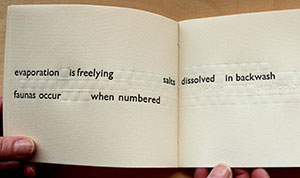 evaporation is freelying salts dissolved in backwash
faunas occur when numbered